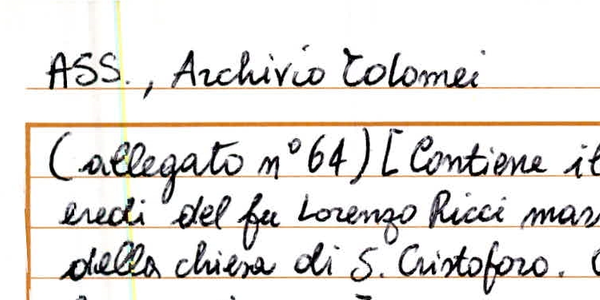 ASS., Archivio Tolomei
(allegato n° 64) [Contiene il
eredi del fu Lorenzo Ricci mar
della chiesa di S. Cristoforo.